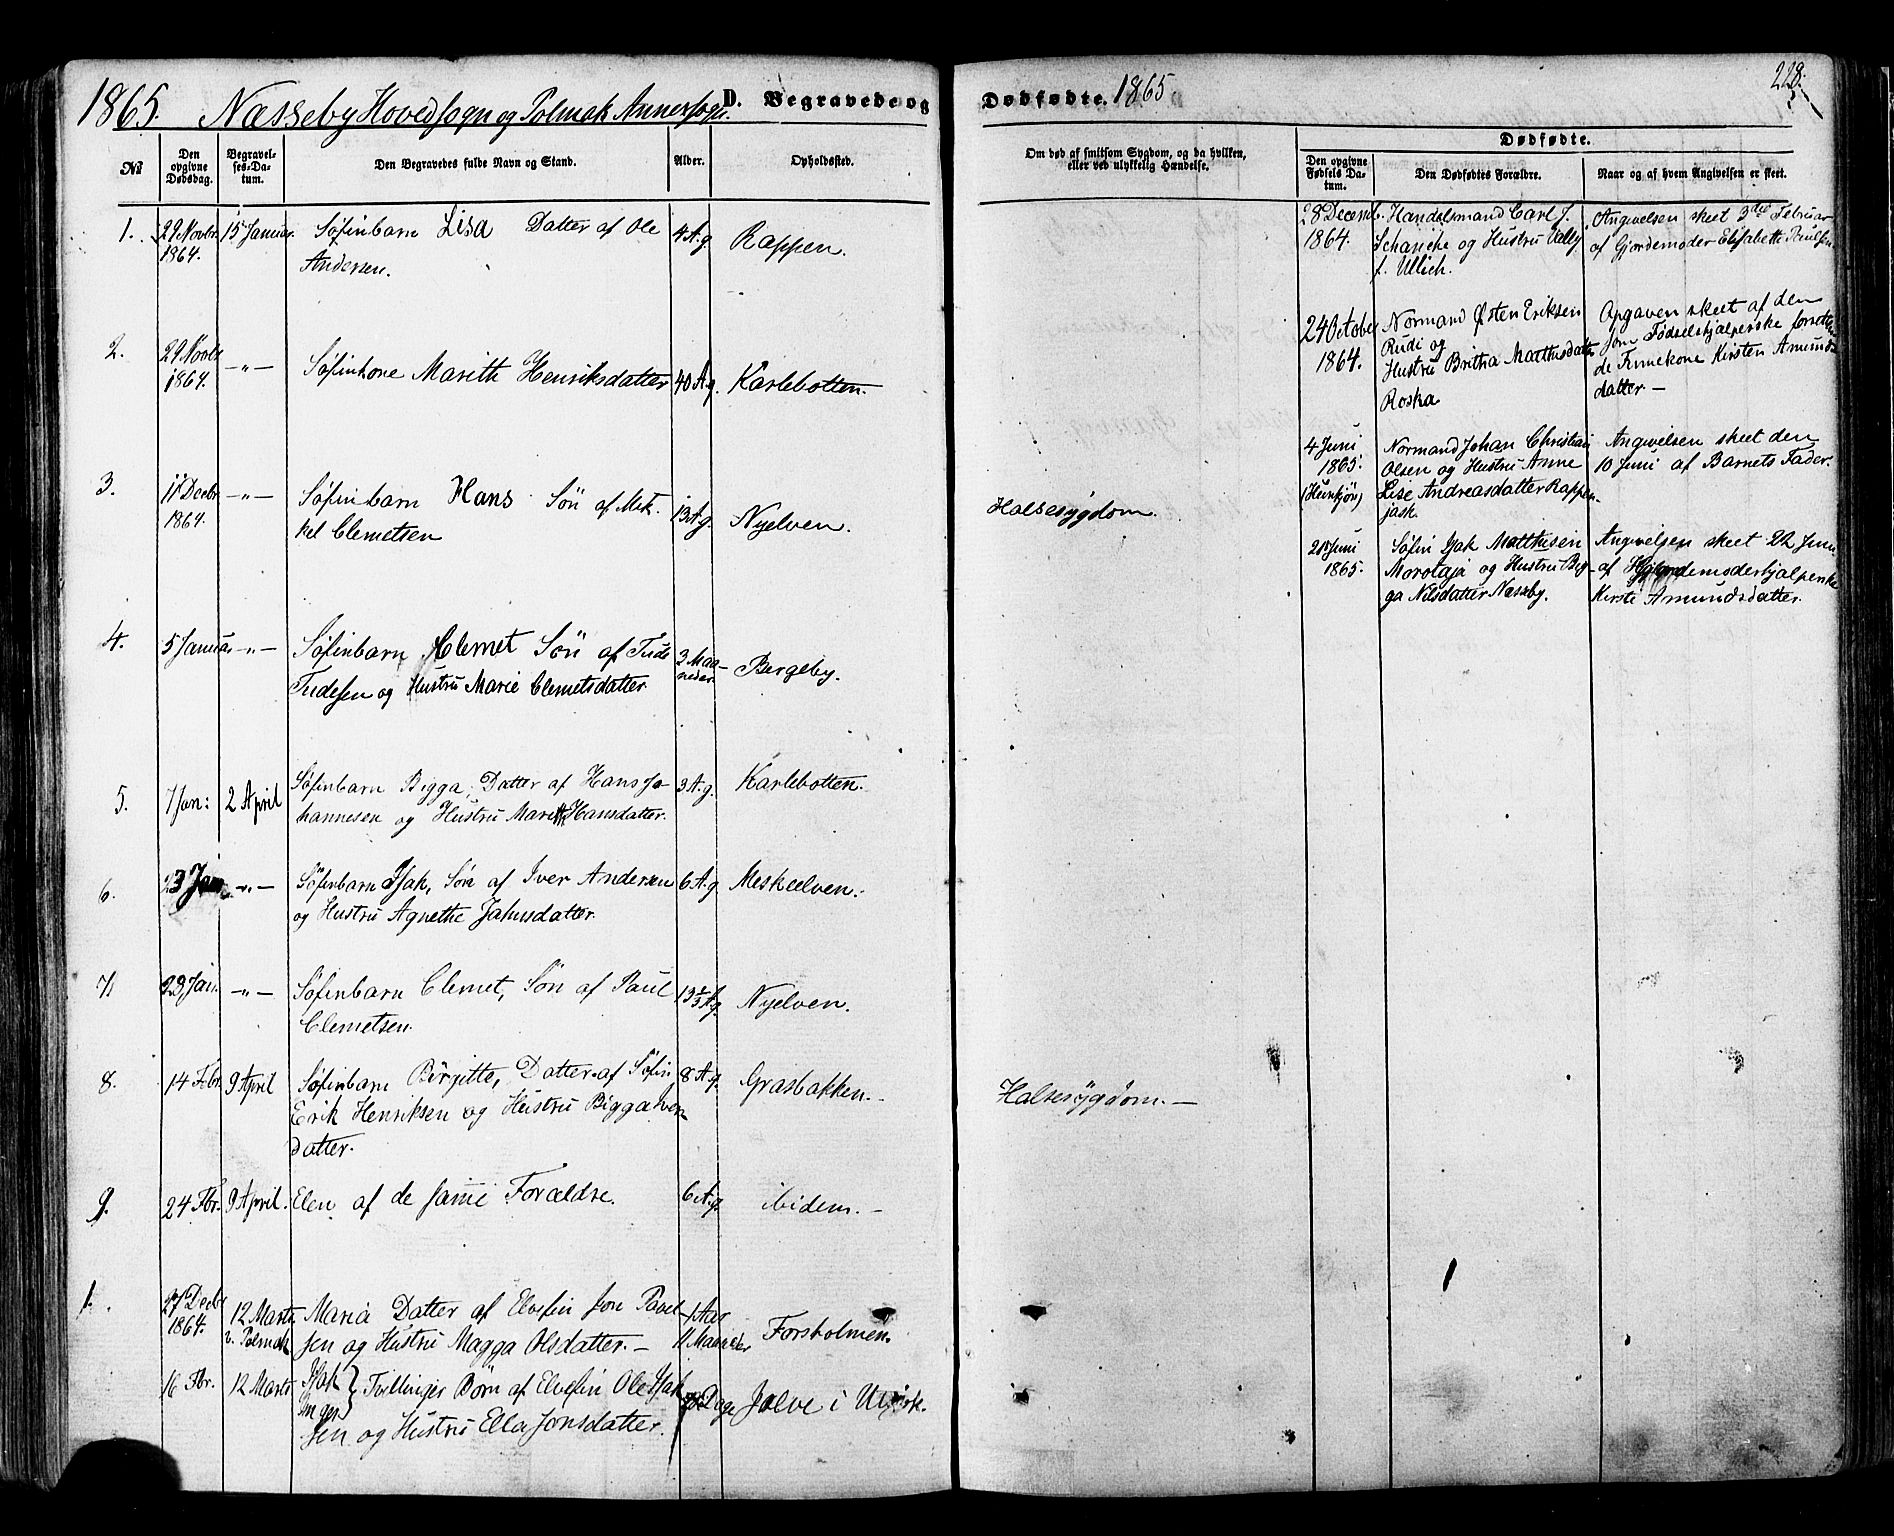 1865. Næsseby Hovedsogn og Polmak Annexsogn. D. Begravede og
Dødfødte. 1865
228.
No
Den opgivne Dødsdag.
Begravelses-Datum.
Den Begravedes fulde Navn og Stand.
Alder.
Opholdssted.
Om død af smitsom Sygdom, og da hvilken,
eller ved ulykkelig Hændelse.
Dødfødte.
Den opgivne Fødsels Datum.
Den Dødfødtes Forældre.
Naar og af hvem Angivelsen er skeet.
1. 29 Novbr. 15 Januar. Søfinbarn Lisa Datter af Ole 4 A.g. Rappen.
1864. Andersen.
2. 29 Novbr 1864. -"- Søfinkone Marith Henriksdatter 40 A.g. Karlebotten.
3. 11 Decbr. -"- Søfinbarn Hans Søn af Mik- 13 A.g. Nyelven. Halsesygdom.
1864. kel Clemetsen
4. 5 Januar -"- Søfinbarn Clemet Søn af Tude 3 Maa- Bergeby.
Tudesen og Hustru Marie Clemetsdatter. neder.
5. 7 Jan: 2 April Søfinbarn Bigga, Datter af Hans Jo- 3 A.g. Karlebotten.
hannesen og Hustru Marith Hansdatter.
6. 23 Jan -"- Søfinbarn Isak, Søn af Iver Andersen 6 A.g. Meskelven.
og Hustru Agnethe Johnsdatter.
7. 23 Jan. -"- Søfinbarn Clemet, Søn af Paul 13 A.g. Nyelven.
Clemetsen.
8. 14 Fbr. 9 April Søfinbarn Birgitte, Datter af Søfin 8 A.g. Grasbakken. - Halsesygdom. -
Erik Henriksen og Hustru Bigga Iver-
datter.
9. 24 Fbr. 9 April. Elen af de samme Forældre. 6 A.g. ibidem. -
1. 27 Decbr 12 Marts Maria Datter af Elvefin Jon Pavel- 1 Aar Forsholmen.
1864. v. Polmak sen og Hustru Magga Olsdatter. - 11 Maaneder
16 Fbr. 12 Marts Isak } Tvillinger Børn af Elvefin Ole Isak- Dage Jalve i Utsjok.
Inger
sen og Hustru Ella Jonsdatter.
28 Decemb. Handelsmand Carl J. Angivelsen skeet 3die Februar
1864. Schanche og Hustru Vally af Gjordemoder Elisabeth Paulsen
f. Ullich.
24 October Normand Østen Eriksen Opgaven skeet af den
Rudi og som Fødselshjælperske
1864. Hustru Britha Matthisdatter de Finnekone Kirsten Amunds-
Roska datter. -
4 Juni Normand Johan Christian Angivelsen skeet den
1865. Olsen og Hustru Anne 10 Juni af Barnets Fader.
(Hunkjøn) Lise Andreasdatter Rappen-
jask.
21 Juni Søfin Isak Matthisen Angivelsen skeet 22 Juni
1865. Morotaja og Hustru Big- af Gjordemoderhjælperske
ga Nilsdatter Næsseby. Kirste Amundsdatter.